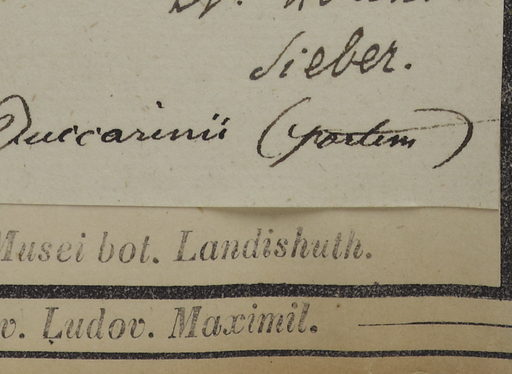 Sieber.
Zuccarinii (partem)
Musei bot. Landishuth.
v. Ludov. Maximil.